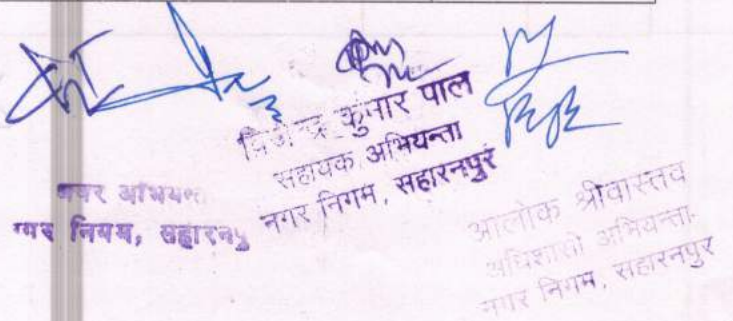 अवर अभियन्ता
नगर निगम, सहारनपु
कुमार पाल
सहायक अभियन्ता
नगर निगम, सहारनपुर
आलोक श्रीवास्तव
अधिशासी अभियन्ता
नगर निगम, सहारनपुर